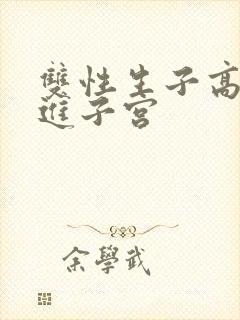 雙性生子高
進子宮
余學武